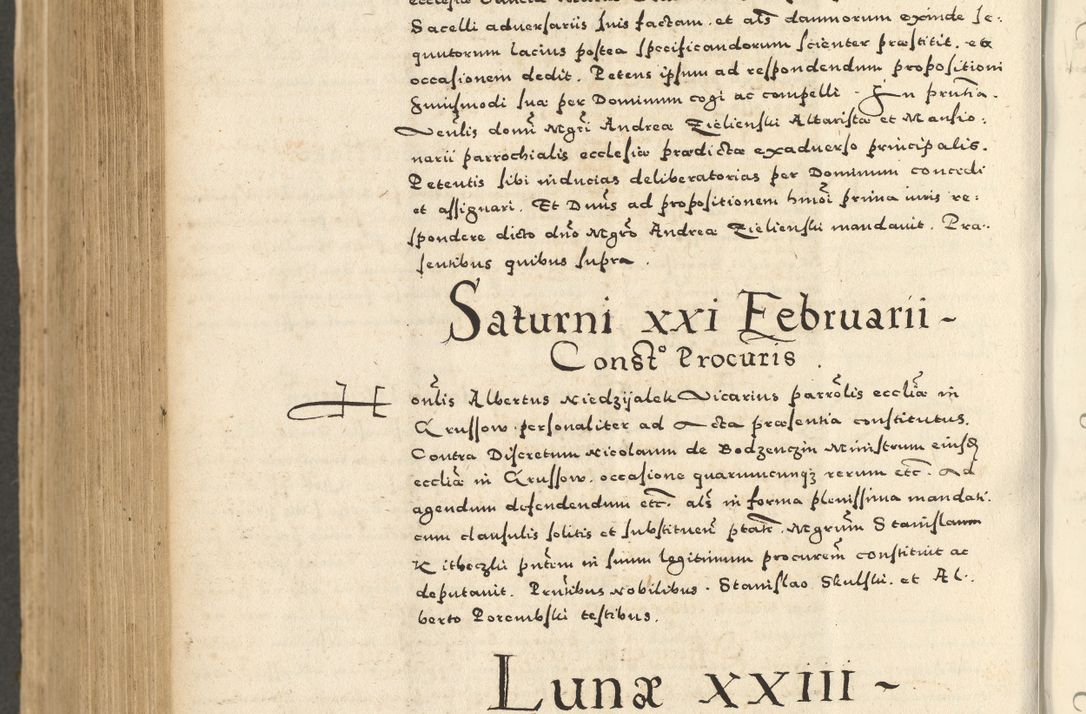 Sacelli adversariis suis factam. et als damnorum exinde se:
quutorum lacius postea specificandorum scienter præstitit. et
occasionem dedit. Petens ipsum ad respondendum propositioni
huiusmodi suæ per Dominum cogi ac compelli. In prntia.
Venlis domi Mgri Andreæ Zielienski Altaristæ et Mansio:
narii parrochialis ecclesiæ prædictæ exadverso principalis.
Petentis sibi inducias deliberatorias per Dominum concedi
et assignari. Et Dnus ad propositionem hmoi prima iuris re:
spondere dicto dno Mgro Andreæ Zielienski mandavit. Præ:
sentibus quibus supra.
Saturni xxi Februarii -
Constº Procuris.
Honlis Albertus Niedzijalek Vicarius parrolis eccliæ in
Krussow personaliter ad Acta præsentia constitutus.
Contra Discretum Nicolaum de Bodzenczin Ministrum eiusdem
eccliæ in Krussow. occasione quarumcunq; rerum etc. Ad
agendum defendendum etc. als in forma plenissima mandati.
cum clausulis solitis et substituen ptate. Mgrum Stanislaum
Kitheczki pntem in suum legitimum procurem constituit ac
deputavit. Prntibus Nobilibus. Stanislao Skulski. et Al:
berto Porembski testibus.
Lunæ XXIII -